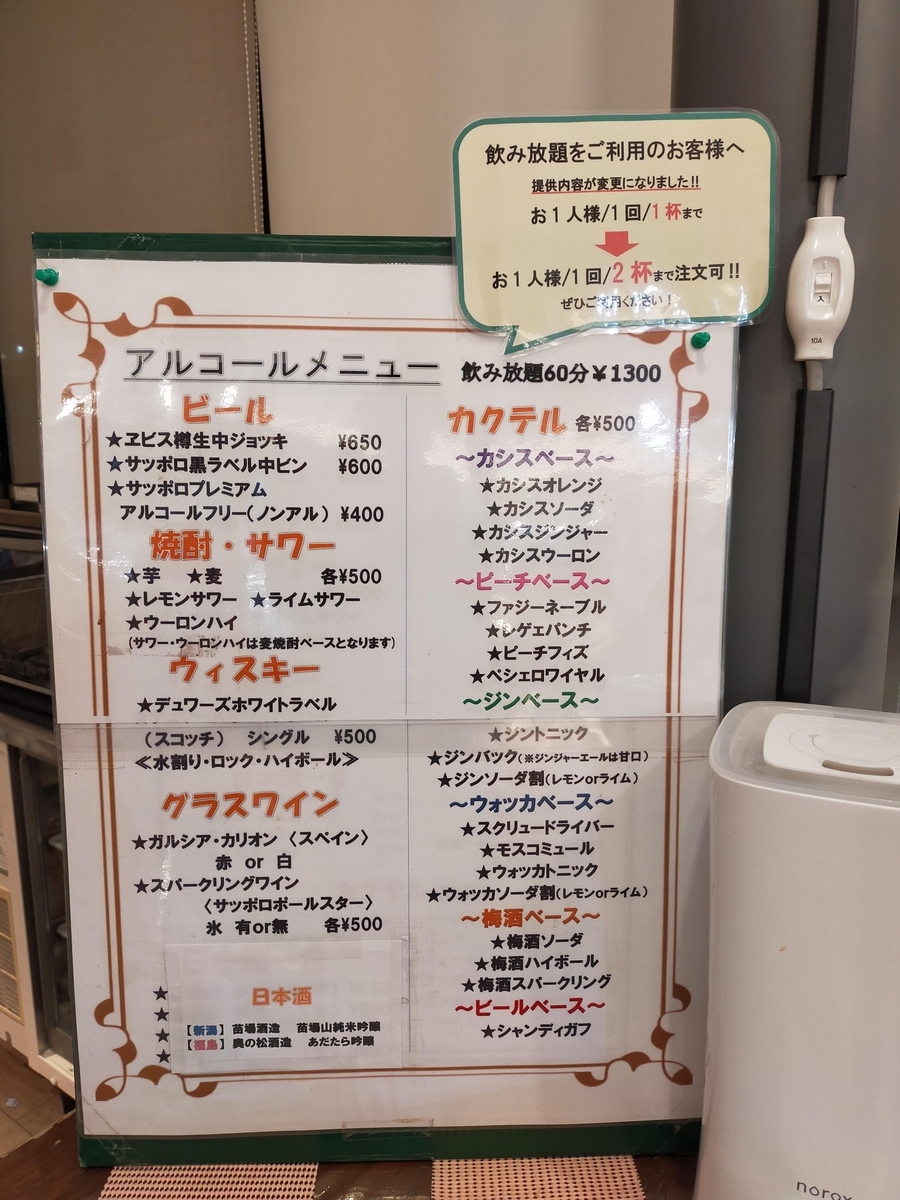 飲み放題をご利用のお客様へ
提供内容が変更になりました!!
お1人様/1回/1杯まで
お1人様/1回/2杯まで注文可!!
ぜひご利用ください!
アルコールメニュー
飲み放題60分¥1300
ビール
★ヱビス樽生中ジョッキ ¥650
★サッポロ黒ラベル中ビン ¥600
★サッポロプレミアム
アルコールフリー(ノンアル) ¥400
焼酎・サワー
★芋 ★麦 各¥500
★レモンサワー ★ライムサワー
★ウーロンハイ
(サワー・ウーロンハイは麦焼酎ベースとなります)
ウィスキー
★デュワーズホワイトラベル
(スコッチ) シングル ¥500
≪水割り・ロック・ハイボール≫
グラスワイン
★ガルシア・カリオン〈スペイン〉
赤 or 白
★スパークリングワイン
〈サッポロポールスター〉
氷 有or無 各¥500
★
★
★
★
日本酒
【新潟】 苗場酒造 苗場山純米吟醸
【福島】 奥の松酒造 あだたら吟醸
カクテル 各¥500
~カシスベース~
★カシスオレンジ
★カシスソーダ
★カシスジンジャー
★カシスウーロン
~ピーチベース~
★ファジーネーブル
★レゲエパンチ
★ピーチフィズ
★ペシェロワイヤル
~ジンベース~
★ジントニック
★ジンバック(※ジンジャーエールは甘口)
★ジンソーダ割(レモンorライム)
~ウォッカベース~
★スクリュードライバー
★モスコミュール
★ウォッカトニック
★ウォッカソーダ割(レモンorライム)
~梅酒ベース~
★梅酒ソーダ
★梅酒ハイボール
★梅酒スパークリング
~ビールベース~
★シャンディガフ
入
10A